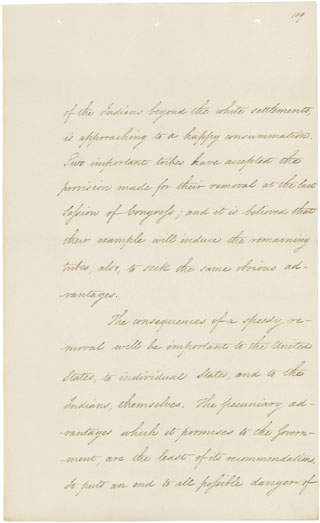 109
of the Indians beyond the white settlements,
is approaching to a happy consummation.
Two important tribes have accepted the
provision made for their removal at the last
Session of Congress; and it is believed that
their example will induce the remaining
tribes, also, to seek the same obvious ad-
-vantages.
The consequences of a speedy re-
-moval will be important to the United
States, to individual States, and to the
Indians, themselves. The pecuniary ad-
-vantages which it promises to the Govern-
-ment, are the least of its recommendations.
It puts an end to all possible danger of